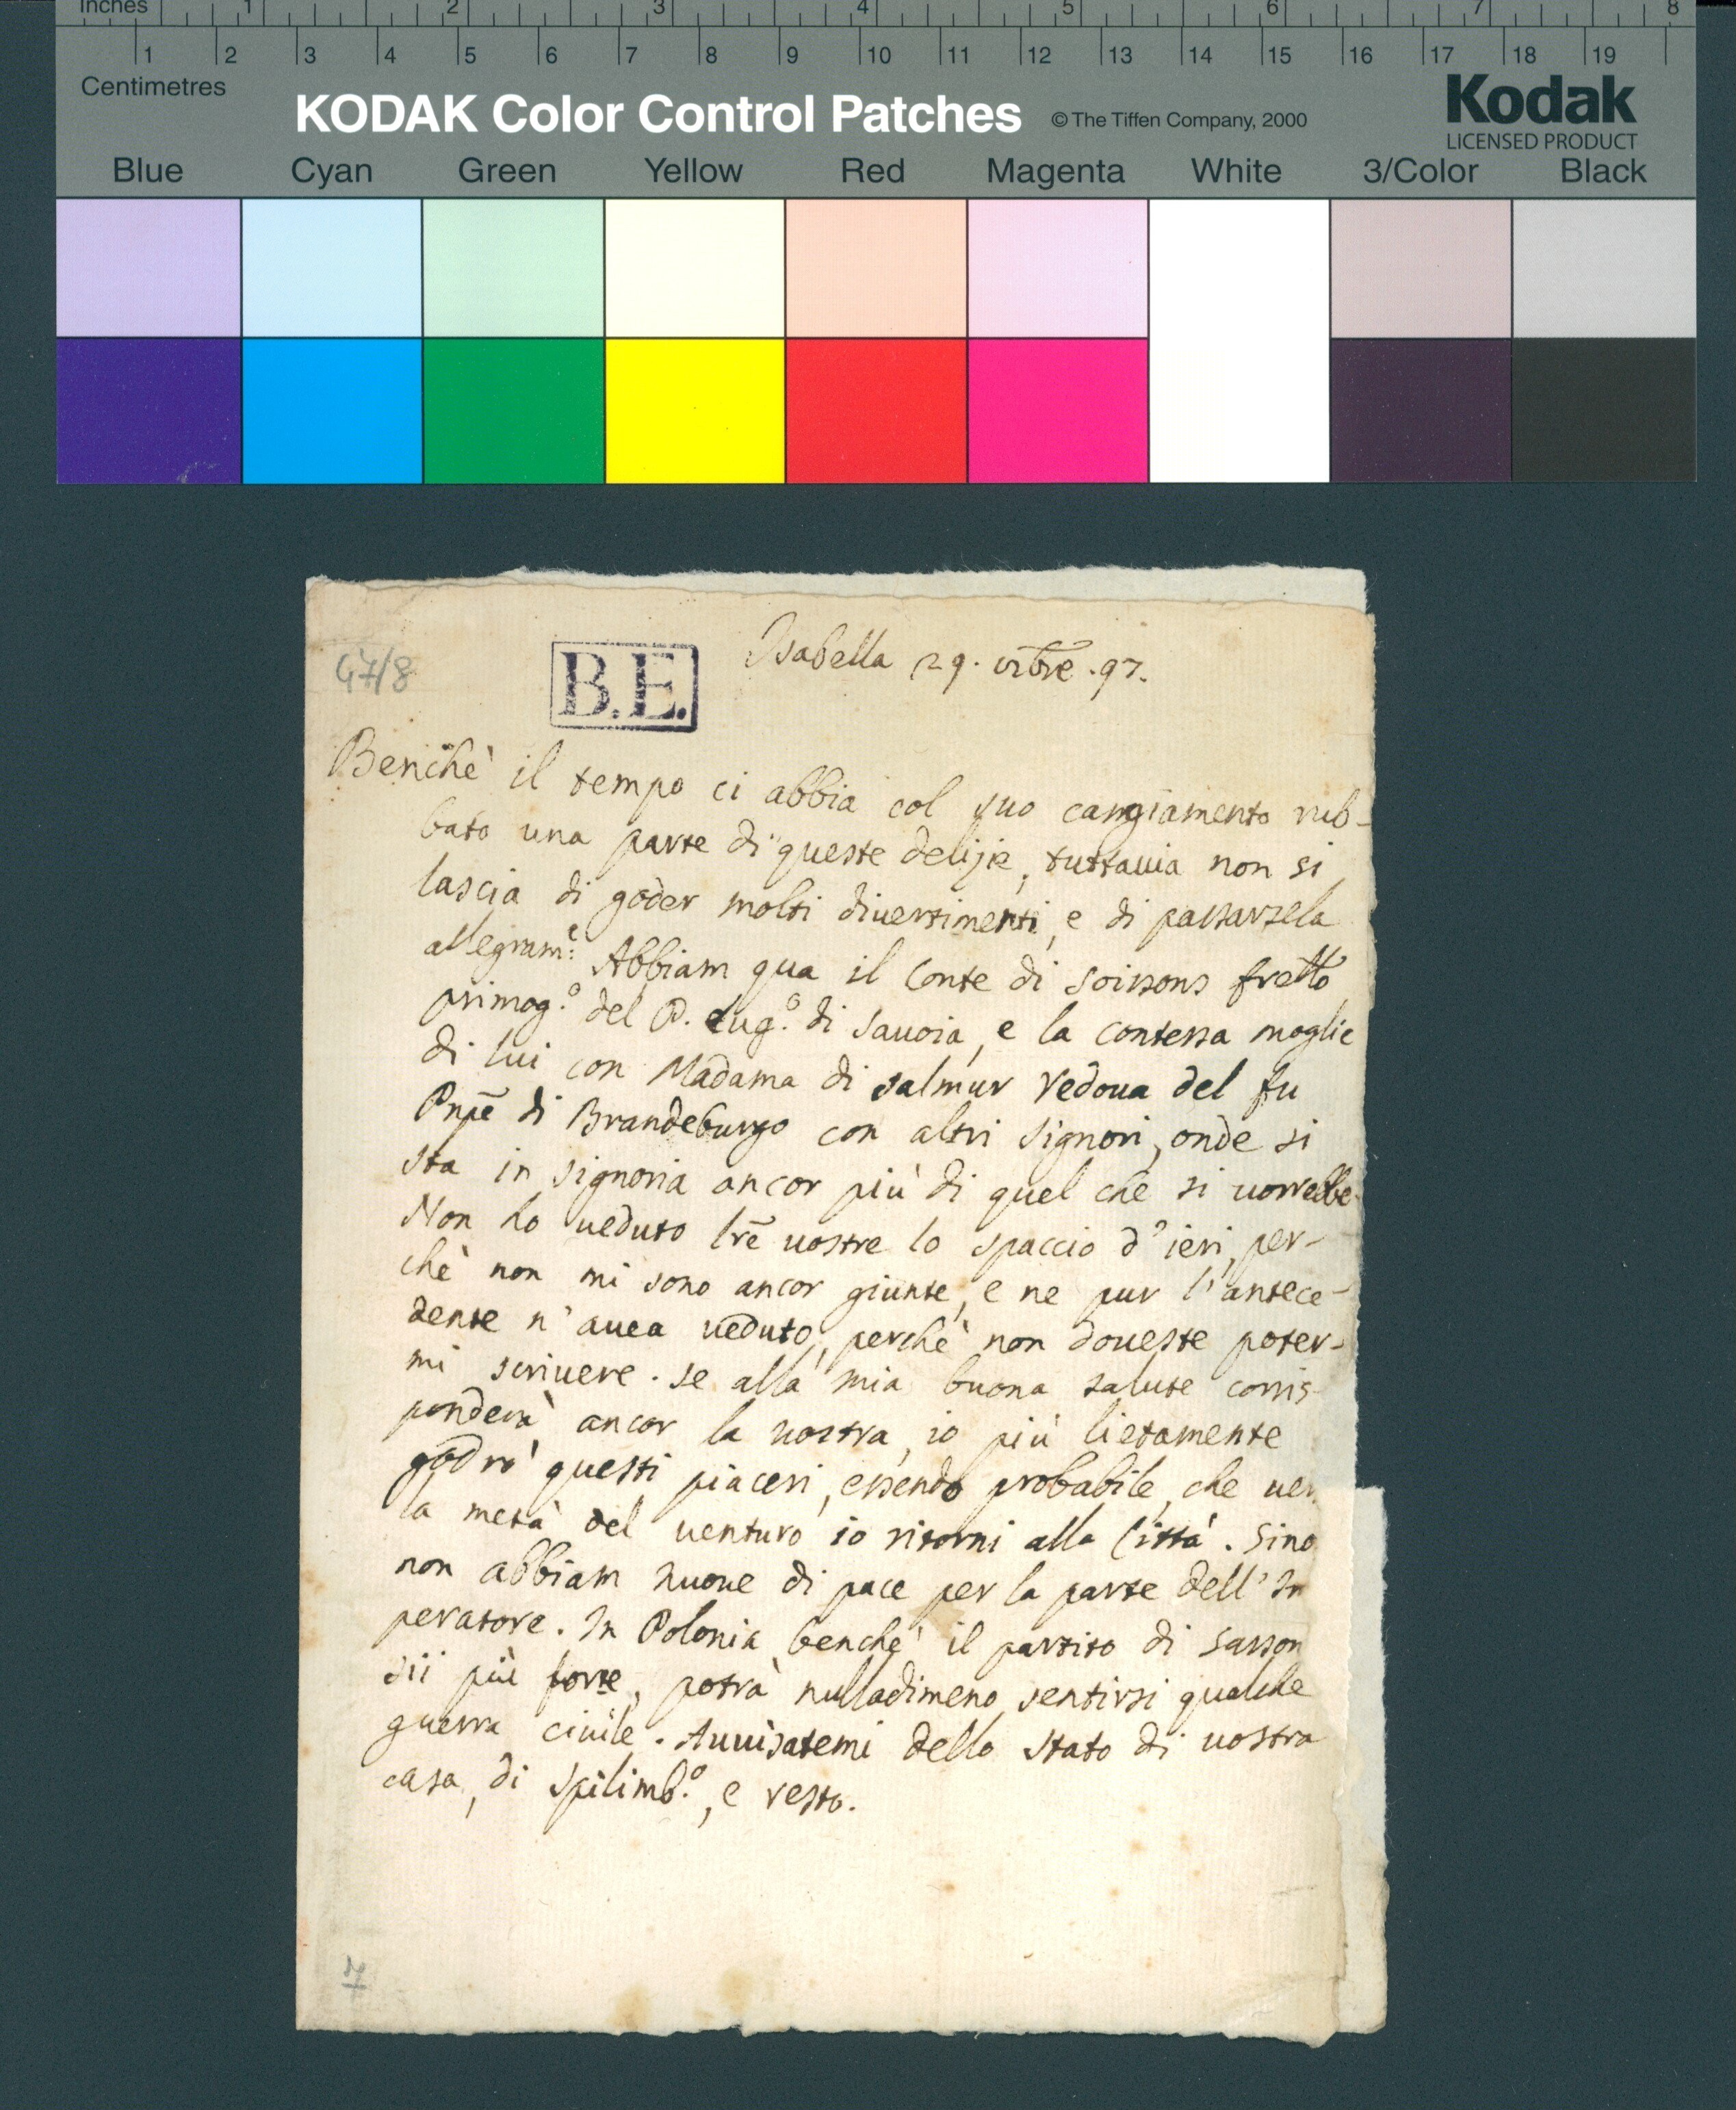 Inches 1 2 3 4 5 6 7 8
1 2 3 4 5 6 7 8 9 10 11 12 13 14 15 16 17 18 19
Centimetres
KODAK Color Control Patches © The Tiffen Company, 2000
Kodak
LICENSED PRODUCT
Blue Cyan Green Yellow Red Magenta White 3/Color Black
47/8
B.E.
Isabella 29. .97.
Benchè il tempo ci abbia col suo cangiamento rub-
bato una parte di queste delizie, tuttauia non si
lascia di goder molti diuertimenti, e di passarsela
allegram:e Abbiam qua il Conte di Soissons fretto
primog.o del P. Eug.o di Sauoia, e la Contessa moglie
di lui con Madama di Salmur Vedoua del fu
Pnpē di Brandeburgo con altri Signori, onde si
sta in signoria ancor più di quel che si uorrebbe.
Non ho ueduto lrē uostre lo spaccio d'ieri, per-
chè non mi sono ancor giunte, e ne pur l'antece-
dente n'auea ueduto, perchè non doueste poter-
mi scriuere. Se alla mia buona salute corris-
ponderà ancor la uostra, io più lietamente
godrò questi piaceri, essendo probabile, che uer
la metà del uenturo io ritorni alla Città. Sino
non abbiam nuoue di pace per la parte dell'Im
peratore. In Polonia benchè il partito di Sasson
sii più forte, potrà nulladimeno sentirsi qualche
guerra ciuile. Auuisatemi dello stato di uostra
casa, di Spilimb.o, e resto.
7